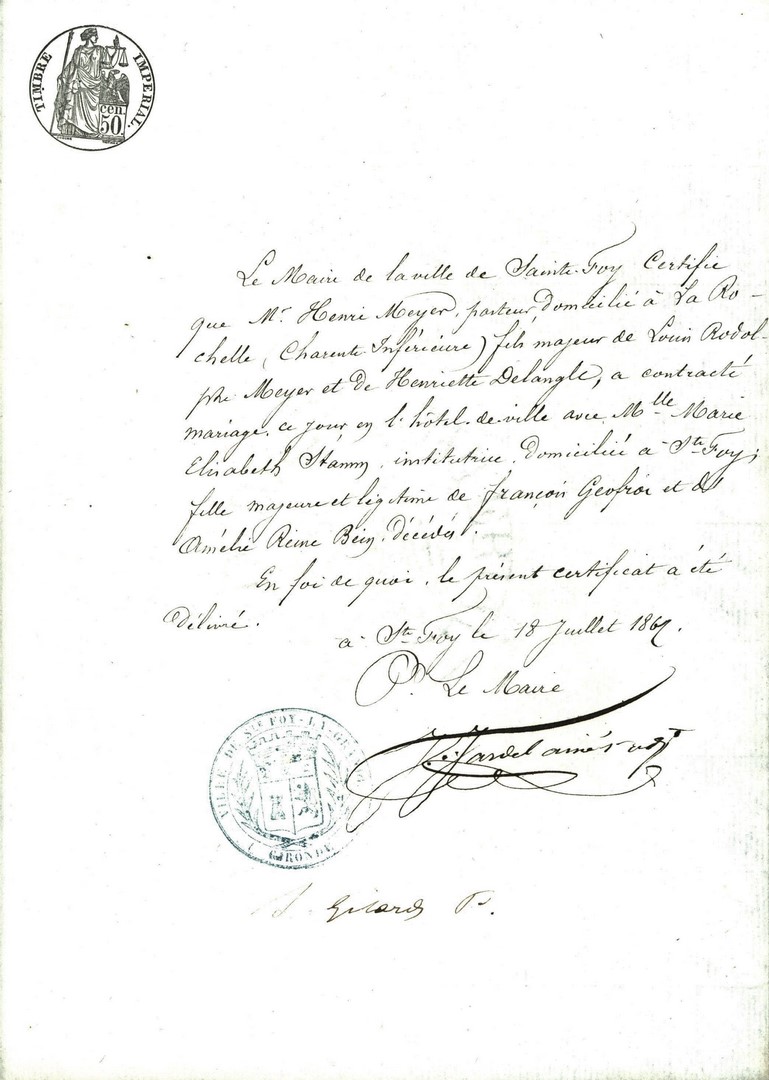 TIMBRE IMPERIAL.
cen
50
Le Maire de la ville de Sainte-Foy Certifie
que Mr. Henri Meyer, pasteur, domicilié à La Ro-
chelle, (Charente Inférieure) fils majeur de Louis Rodol-
phe Meyer et de Henriette Delangle, a contracté
mariage, ce jour en l'hôtel-de-ville avec Mlle Marie
Elisabeth Stamm, institutrice, domiciliée à Ste Foy,
fille majeure et légitime de François Geofroi et de
Amélie Reine Bein, décédés.
En foi de quoi, le présent certificat a été
délivré.
à Ste Foy le 18 Juillet 186
Pr. Le Maire
Jardel ainé
VILLE DE STE FOY-LA-GRANDE
GIRONDE